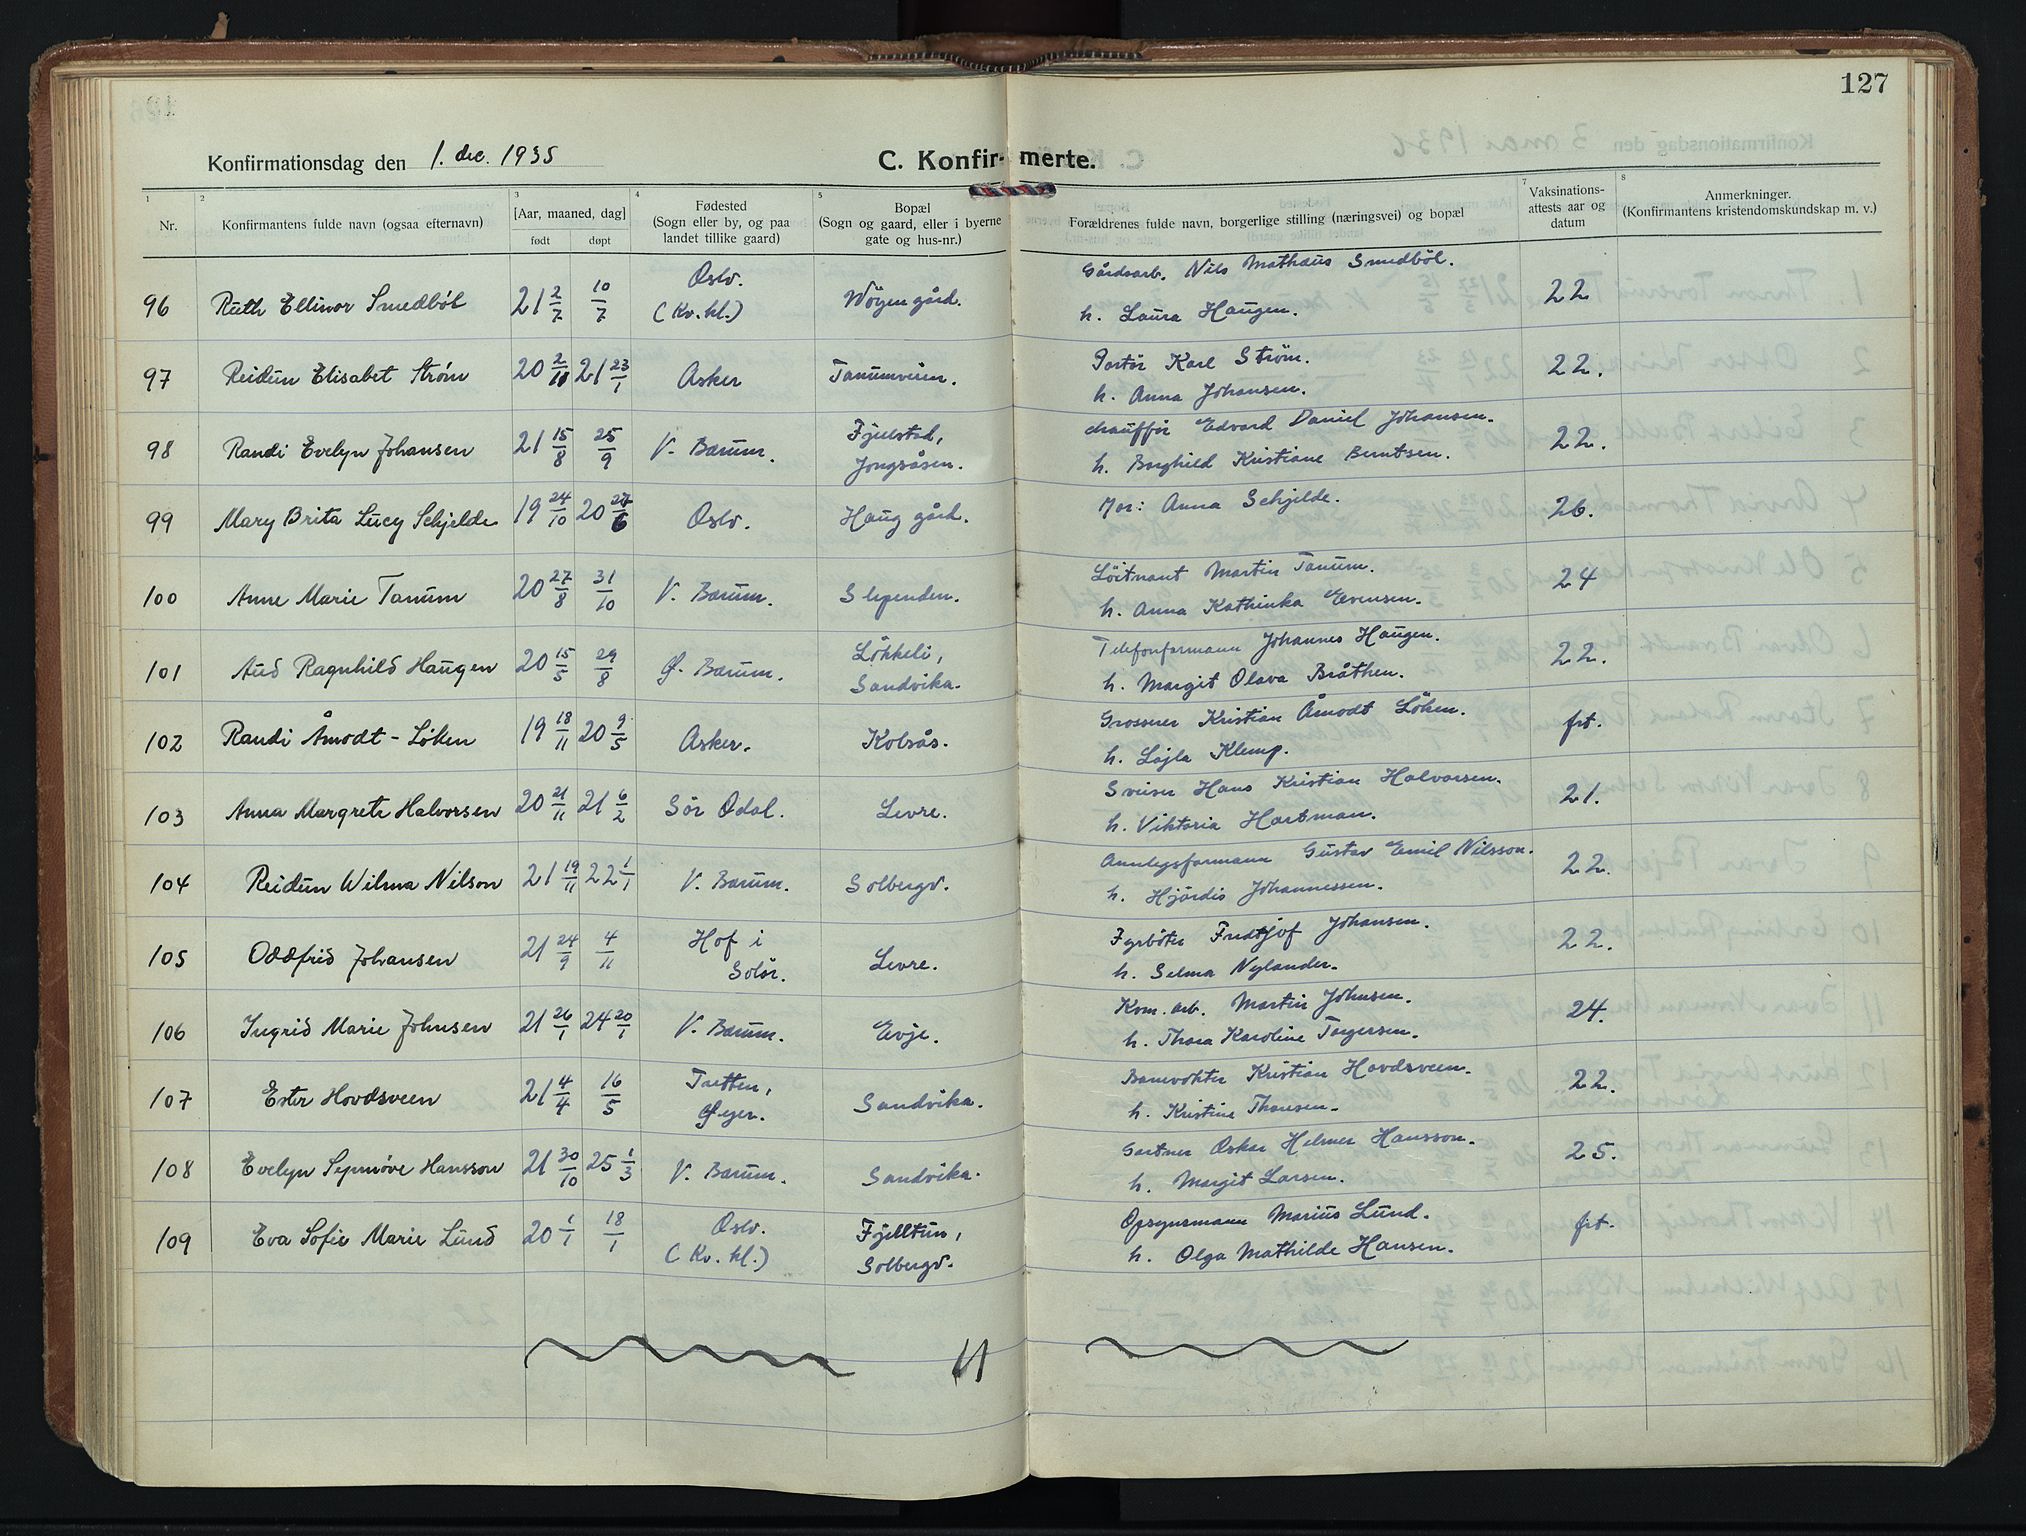 127
Konfirmationsdag den 1. dec. 1935
C. Konfir- merte.
1 Nr.
2 Konfirmantens fulde navn (ogsaa efternavn)
3 [Aar, maaned, dag] født døpt
4 Fødested (Sogn eller by, og paa landet tillike gaard)
5 Bopæl (Sogn og gaard, eller i byerne gate og hus-nr.)
Forældrenes fulde navn, borgerlige stilling (næringsvei) og bopæl
7 Vaksinations-attests aar og datum
8 Anmerkninger. (Konfirmantens kristendomskundskap m. v.)
96 Ruth Ellinor Smedböl 21 2/7 10/7 Oslo. (Kv. kl.) Wöyen gård. Gårdsarb. Nils Mathæus Smedböl. h. Laura Haugen. 22
97 Reidun Elisabet Strøm 20 2/11 21 23/1 Asker Tanumveien. Portör Karl Ström. h. Anna Johansen. 22.
98 Randi Evelyn Johansen 21 15/8 25/9 V. Bærum. Fjelstad, Jongsåsen. chaufför Edvard Daniel Johansen. h. Borghild Kristiane Berntsen. 22.
99 Mary Brita Lucy Schjelde 19 24/10 20 27/6 Oslo. Haug gård. Mor: Anna Schjelde. 26.
100 Anne Marie Tanum 20 27/8 31/10 V. Bærum. Slependen. Löitnant Martin Tanum. h. Anna Kathinka Evensen. 24
101 Aud Ragnhild Haugen 20 15/5 29/8 Ø. Bærum. Lökkeli, Sandvika. Telefonformann Johannes Haugen. h. Margit Olava Bråthen. 22.
102 Randi Åmodt-Löken 19 18/11 20 9/5 Asker. Kolsås. Grosserer Kristian Åmodt Löken. h. Lajla Klemp. frt.
103 Anna Margrete Halvorsen 20 21/11 21 6/2 Sör Odal. Levre. Sveiser Hans Kristian Halvorsen. h. Viktoria Hartman. 21.
104 Reidun Wilma Nilson 21 19/11 22 1/1 V. Bærum. Solbergv. Anleggsformann Gustav Emil Nilsson. h. Hjördis Johannessen. 22.
105 Oddfrid Johansen 21 24/9 4/11 Hof i Solör. Levre. Fyrböter Fridtjof Johansen. h. Selma Nylander. 22.
106 Ingrid Marie Johnsen 21 26/1 24 20/1 V. Bærum. Evje. Kom. arb. Martin Johnsen. h. Thora Karoline Torgersen. 24.
107 Ester Hovdsveen 21 4/4 16/5 Tretten, Øyer. Sandvika. Banevokter Kristian Hovdsveen. h. Kristine Thoresen. 22.
108 Evelyn Synnöve Hansson 21 30/10 25 1/3 V. Bærum. Sandvika. Gartner Oskar Helmer Hansson. h. Margit Larsen. 25.
109 Eva Sofie Marie Lund 20 1/1 18/1 Oslo. (Kv. kl.) Fjelltun, Solbergv. Opsynsmann Marius Lund. h. Olga Mathilde Hansen. frt.